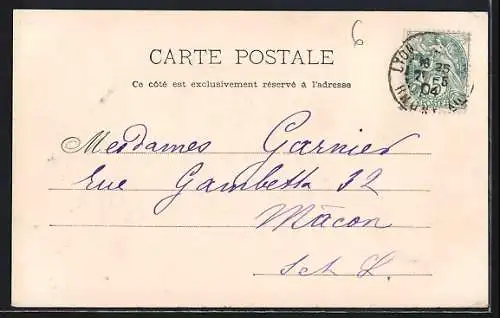 6
CARTE POSTALE
Ce côté est exclusivement réservé à l'adresse
LYON
16 25
04
Mesdames Garnier
Rue Gambetta 32
Mâcon